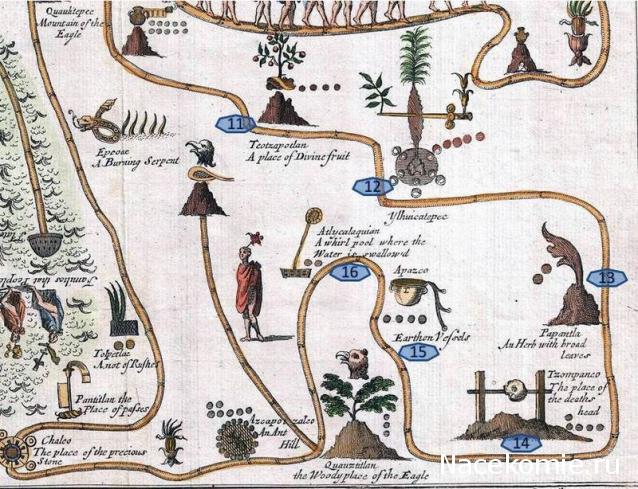 Quauhtepec
Mountain of the
Eagle
Epcoac
A Burning Serpent
11
Teotzapotlan
A place of Divine fruit
12
Ylhuicatepec
Atlycalaquian
A whirl pool where the
Water is swallow'd
16
Apazco
Earthen Vessels
15
13
Papantla
An Herb with broad
leaves
Tzompanco
The place of
the deaths
head
14
Tolpetlac
A not of Rushes
Pantitlan the
Place of passes
Chalco
The place of the precious
Stone
Azcapotzalco
An Ant
Hill
Quauztitlan
the Woody place of the Eagle
Nacekomie.ru